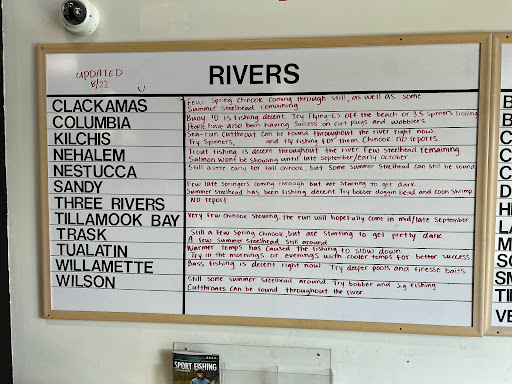 UPDATED
8/22
RIVERS
CLACKAMAS
Few Spring Chinook coming through still, as well as some
Summer Steelhead remaining
COLUMBIA
Buoy 10 is fishing decent. Try Flying-C's off the beach or 3.5 Spinners trolling
People have also been having success on cut plugs and wobblers.
KILCHIS
Sea-run cutthroat can be found throughout the river right now.
Try Spinners, and fly fishing for them. Chinook no reports.
NEHALEM
Trout fishing is decent throughout the river few steelhead remaining
Salmon wont be showing until late September/early october
NESTUCCA
Still alittle early for fall chinook, but some Summer Steelhead can still be found
SANDY
Few late Springers coming through but are starting to get dark.
Summer Steelhead has been fishing decent. Try bobber doggin bead and coon shrimp
THREE RIVERS
NO report
TILLAMOOK BAY
Very few chinook showing, the run will hopefully come in mid/late September
TRASK
Still a few Spring Chinook, but are starting to get pretty dark
A few summer Steelhead Still around
TUALATIN
Warmer temps has caused the fishing to slow down.
Try in the mornings or evenings with cooler temps for better success.
WILLAMETTE
Bass fishing is decent right now. Try deeper pools and finesse baits
WILSON
Still some summer Steelhead around. Try bobber and Jig fishing.
Cutthroats can be found throughout the river
SPORT FISHING